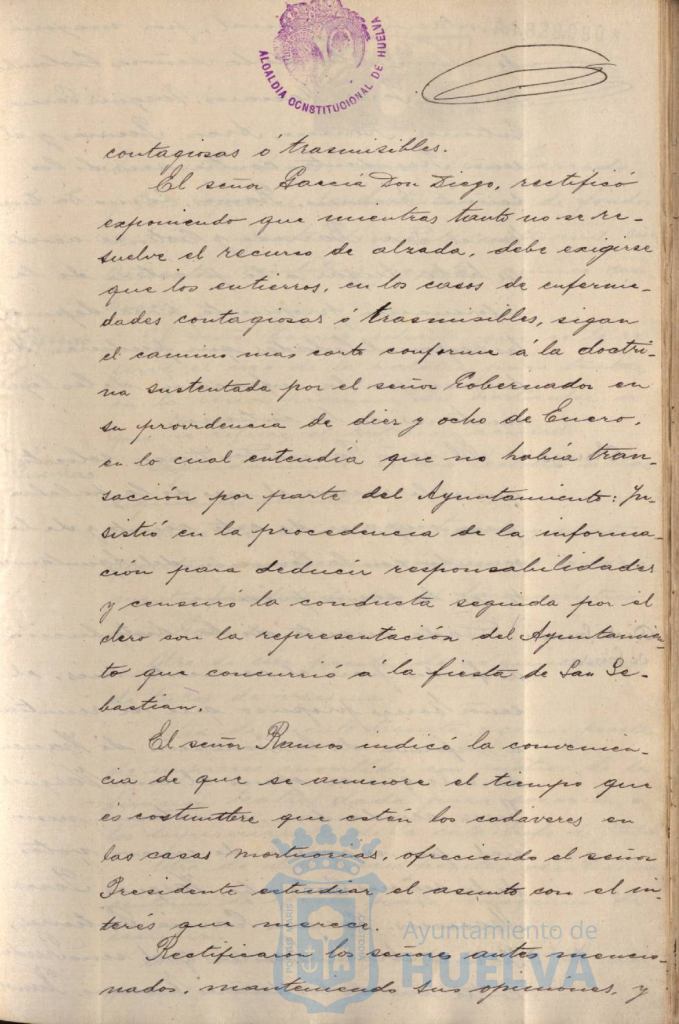 ALCALDIA CONSTITUCIONAL DE HUELVA
contagiosas ó trasmisibles.
El señor García Don Diego, rectificó
exponiendo que mientras tanto no se re-
suelve el recurso de alzada, debe exigirse
que los entierros, en los casos de enferme-
dades contagiosas ó trasmisibles, sigan
el camino mas corto conforme á la doctri-
na sustentada por el señor Gobernador en
su providencia de diez y ocho de Enero,
en lo cual entendia que no habia tran-
sacción por parte del Ayuntamiento: In-
sistió en la procedencia de la informa-
ción para deducir responsabilidades
y censuró la conducta seguida por el
clero con la representación del Ayuntamien-
to que concurrió á la fiesta de San Se-
bastian.
El señor Ramos indicó la convenien-
cia de que se aminore el tiempo que
es costumbre que estén los cadáveres en
las casas mortuorias, ofreciendo el señor
Presidente estudiar el asunto con el in-
terés que merece.
Rectificaron los señores antes mencio-
nados, manteniendo sus opiniones, y
PORTUS MARIS
CUSTODIA
Ayuntamiento de
HUELVA